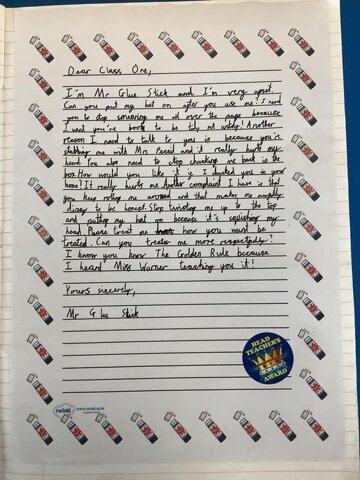 Dear Class One,
I'm Mr Glue Stick and I'm very upset.
Can you put my hat on after you use me? I need
you to stop smearing me all over the page because
I want you're book to be tidy not windy! Another
reason I need to talk to you is because you're
stabbing me with Mr Pencil and it really hurts my
head. You also need to stop chucking me back in the
box. How would you like it if I chucked you in your
home? It really hurts me. Another complaint I have is that
you keep rolling me around and that makes me
dizzy to be honest. Stop twisting me up to the top
and putting my hat on because it's squishing my
head. Please treat me how you must be
treated. Can you treate me more respectfully?
I know you know The Golden Rule because
I heard Miss Warner teaching you it!
Yours sincerly,
Mr Glue Stick
HEAD TEACHER'S
AWARD
twinkl www.twinkl.co.uk